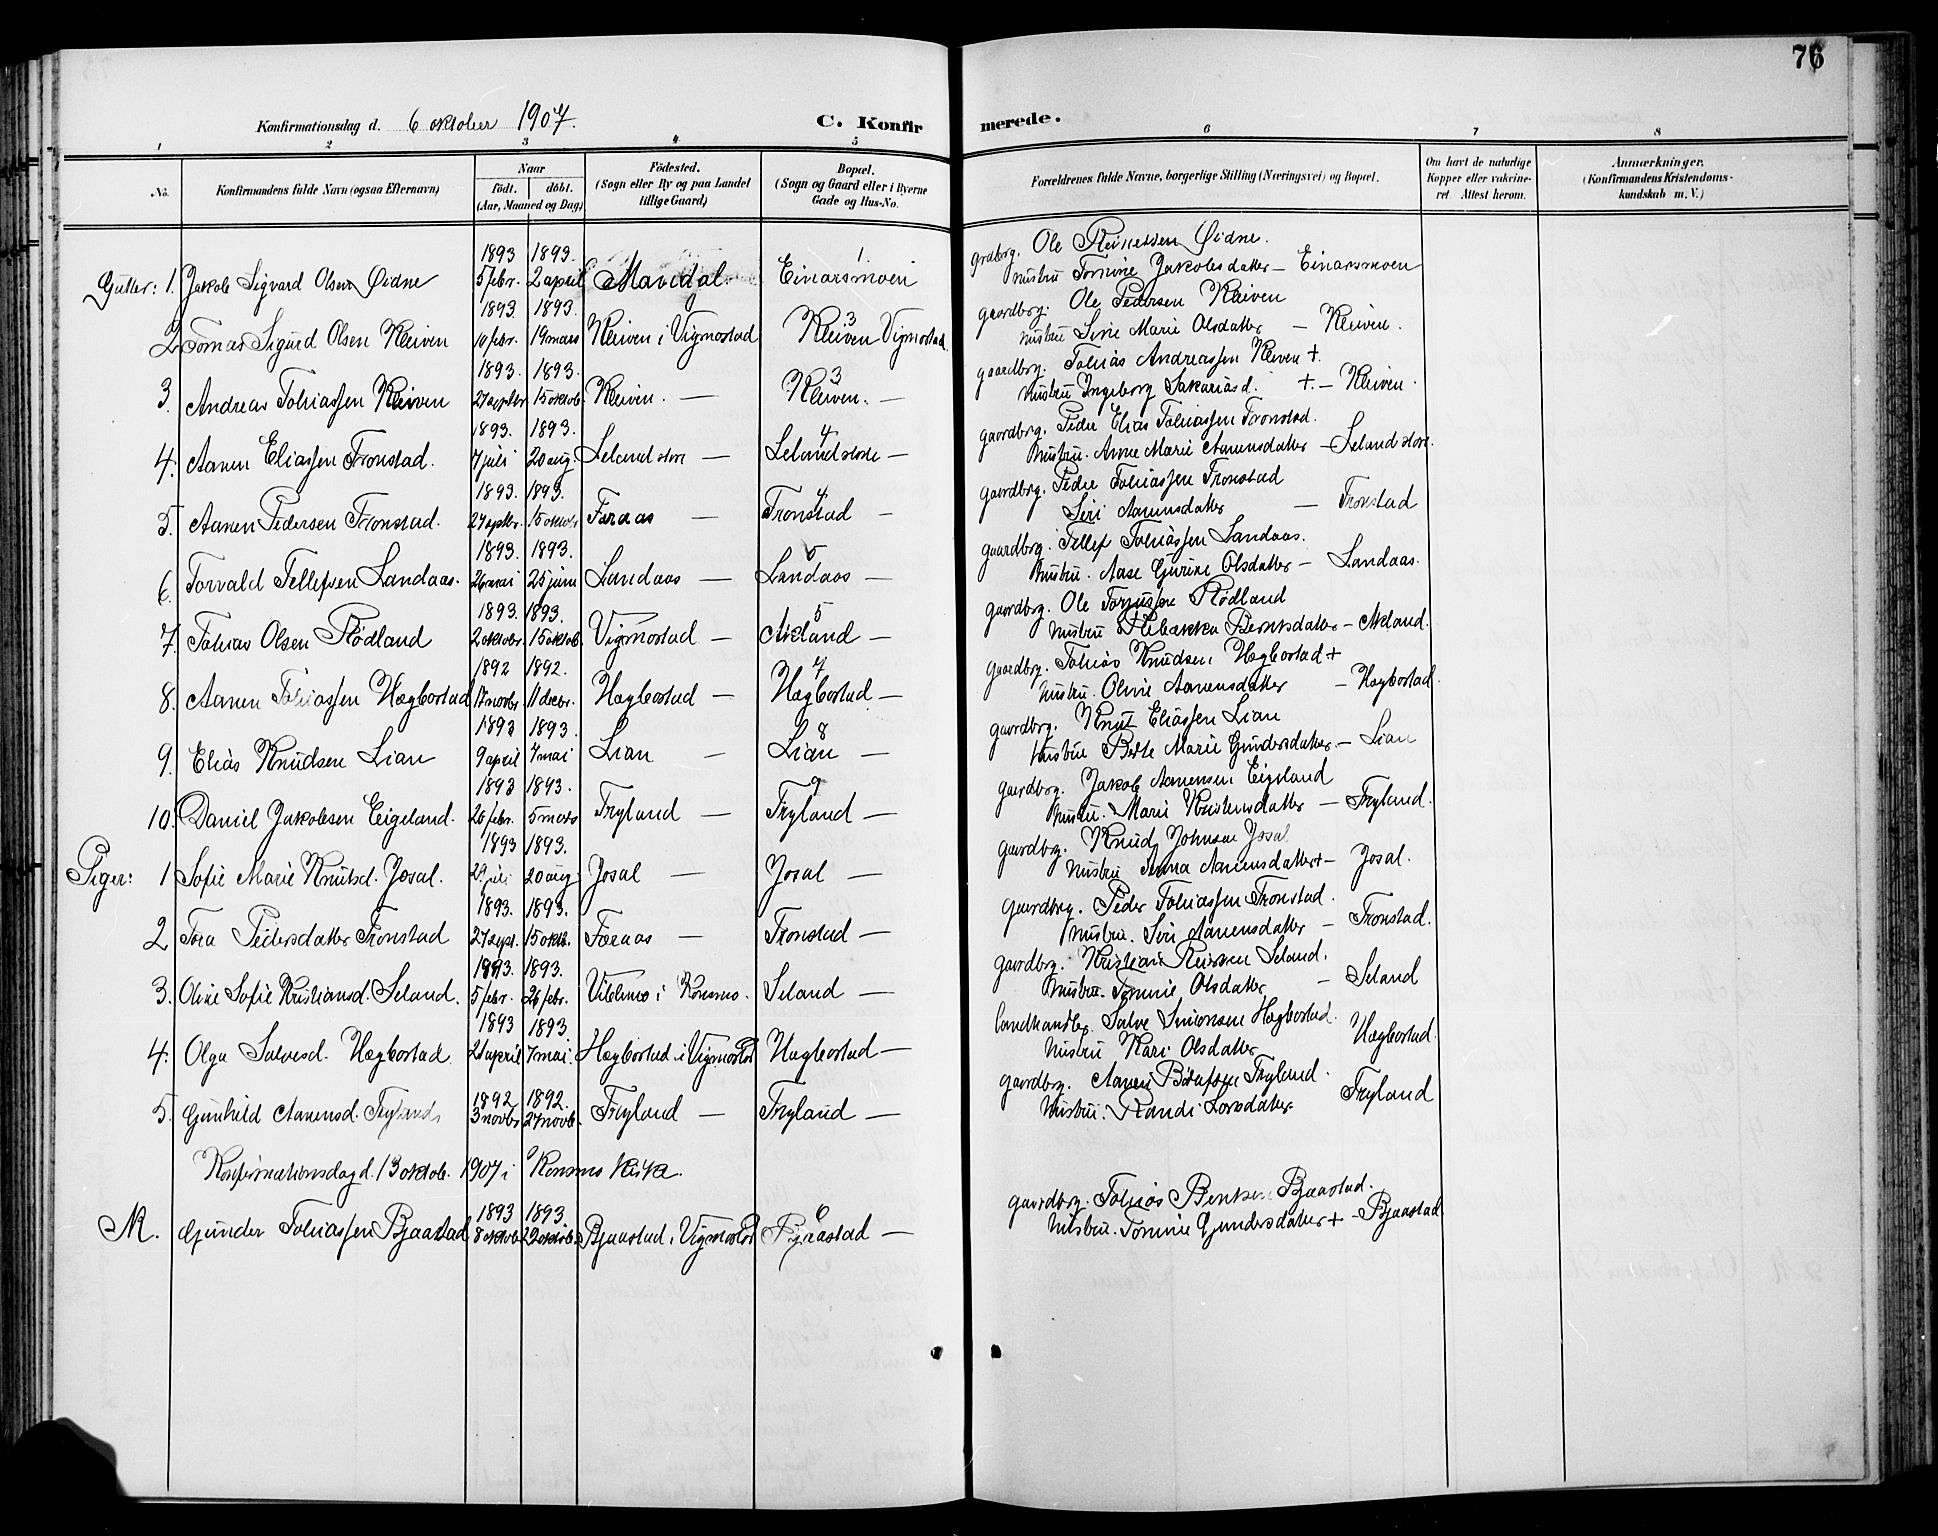 76
Konfirmationsdag d. 6 oktober 1907. C. Konfirmerede.
1 2 3 4 5 6 7 8
No. Konfirmandens fulde Navn (ogsaa Efternavn) Naar födt. döbt. (Aar, Maaned og Dag) Födested. (Sogn eller By og paa Landet tillige Gaard) Bopæl. (Sogn og Gaard eller i Byerne Gade og Hus-No. Forældrenes fulde Navne, borgerlige Stilling (Næringsvei) og Bopæl. Om havt de naturlige Kopper eller vakcineret. Attest herom. Anmærkninger. (Konfirmandens Kristendomskundskab m. V.)
1893 1893. 1 grdbrg. Ole Øidne.
Gutter: 1. Jakob Sigvard Olsen Øidne 5 febr. 2 april Mandal. Einarsmoen Hustru Tomine Jakobsdatter – Einarsmoen
1893. 1893. 3 gaardbrg. Ole Pedersen Kleiven
2. Tomas Sigurd Olsen Kleiven 10 febr. 19 mars Kleiven i Vigmostad Kleiven Vigmostad Hustru Sine Marie Olsdatter – Kleiven.
1893. 1893. 3 gaardbrg. Tobias Andreassen Kleiven +.
3. Andreas Tobiassen Kleiven 27 septbr. 15 oktob. Kleiven. — Kleiven. — Hustru Ingeborg Sakariasd. +. – Kleiven.
1893. 1893. 4 gaardbrg. Peder Elias Tobiassen Tronstad.
4. Aanen Eliassen Tronstad. 7 juli 20 aug. Leland store — Leland store — Hustru. Anne Marie Aanensdatter – Leland store.
1893. 1893. 4 gaardbrg. Peder Tobiassen Tronstad
5. Aanen Pedersen Tronstad. 27 septbr. 15 oktobr Faraas — Tronstad — Siri Aanensdatter — Tronstad
1893. 1893. 5 gaardbrg. Tellef Tobiassen Landaas.
6. Torvald Tellefsen Landaas. 26 mai 25 juni Landaas — Landaas — Hustru. Aase Gurine Olsdatter – Landaas.
1893. 1893. 5 gaardbrg. Ole Rödland
7. Tobias Olsen Rödland 2 oktobr. 15 oktob. Vigmostad — Akland — Hustru Rebækka Berntsdatter – Akland.
1892 1892. 4 gaardbrg. Tobias Knudsen Hægbostad +
8. Aanen Tobiassen Hægbostad 17 novbr. 11 decbr. Hægbostad — Hægbostad — Hustru. Oline Aanensdatter – Hægbostad.
1893 1893. 8 gaardbrg. Knut Eliassen Lian
9. Elias Knudsen Lian 9 april 7 mai Lian — Lian — Hustru Berte Marie Gundersdatter – Lian
1893 1893. 9 gaardbrg. Jakob Aanensen Eigeland
10. Daniel Jakobsen Eigeland. 26 febr. 5 mars Fryland — Fryland — Hustru. Marie Kristensdatter – Fryland.
1893 1893. gaardbrg. Knud Johnsen Josal
Piger: 1 Sofie Marie Knutsd. Josal. 29 juli 20 aug Josal — Josal — Hustru Anna Aanensdatter + – Josal.
1893. 1893. gaardbrg. Peder Tobiassen Tronstad.
2 Tora Pedersdatter Tronstad 27 sept. 15 oktb. Faraas — Tronstad — Hustru. Siri Aanensdatter – Tronstad.
1893. 1893. gaardbrg. Kristian Seland.
3. Oline Sofie Kristiansd. Seland. 5 febr. 26 febr. i Konsmo. Seland — Hustru. Tomine Olsdatter – Seland
1893 1893 landhandler Salve Simonsen Hægbostad.
4. Olga Salvesd. Hægbostad 21 april 7 mai. Hægbostad i Vigmostd Hægbostad — Hustru Kari Olsdatter Hægbostad
1892 1892. gaardbrg. Aanen Fryland.
5. Gunhild Aanensd. Fryland 3 novbr 27 novb. Fryland — Fryland — Hustru. Randi Larsdatter Fryland
Konfirmationsdag d. 13 oktob. 1907 i Konsmo kirke.
1893 1893. 6 gaardbrg. Tobias Bentsen Bjaastad.
N. Gunder Tobiassen Bjaastad 8 oktob. 29 oktob. Bjaastad i Vigmostd Bjaastad — Hustru. Tomine Gundersdatter + – Bjaastad